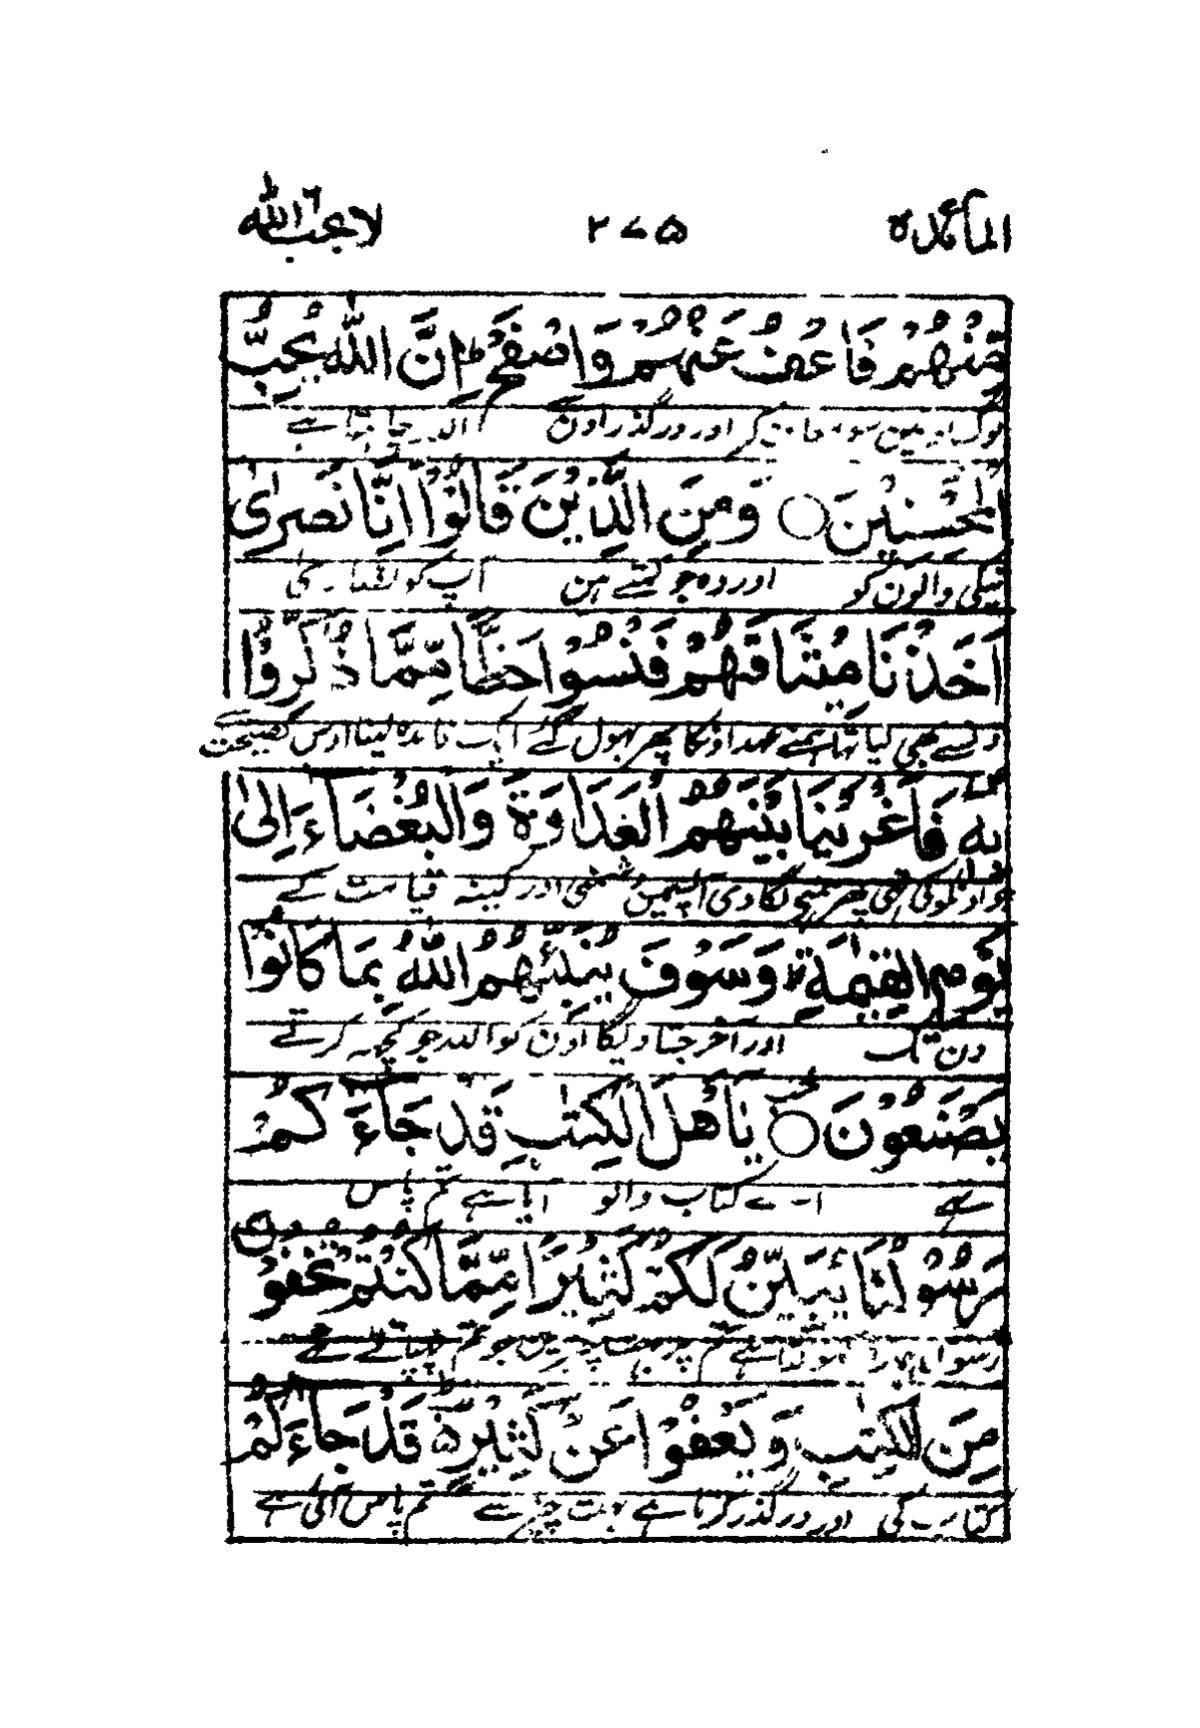 المآئدة ٥ ٢٧٥ لا يحب الله ٦
مِّنْهُمْ فَاعْفُ عَنْهُمْ وَاصْفَحْ ؕ اِنَّ اللّٰهَ يُحِبُّ
کر اور درگذر اون اللہ چاہتا ہے
الْمُحْسِنِيْنَ ○ وَمِنَ الَّذِيْنَ قَالُوْٓا اِنَّا نَصٰرٰٓى
نیکی والون کو اور وہ جو کہتے ہین آپ کو نصاریٰ
اَخَذْنَا مِيْثَاقَهُمْ فَنَسُوْا حَظًّا مِّمَّا ذُكِّرُوْا
لیا تھا ہمنے عہد اونکا پھر بہول گئے ایک فائدہ لینا اوس نصیحت
بِهٖ فَاَغْرَيْنَا بَيْنَهُمُ الْعَدَاوَةَ وَالْبَغْضَآءَ اِلٰى
جو اونکو کی تھی پھر ہمنے لگا دی آپسمین دشمنی اور کینہ قیامت کے
يَوْمِ الْقِيٰمَةِ ؕ وَسَوْفَ يُنَبِّئُهُمُ اللّٰهُ بِمَا كَانُوْا
دن تک اور آخر جتا دیگا اون کو اللہ جو کچھ کرتے
يَصْنَعُوْنَ ○ يٰٓاَهْلَ الْكِتٰبِ قَدْ جَآءَكُمْ
تھے اے کتاب والو آیا ہے تم پاس
رَسُوْلُنَا يُبَيِّنُ لَكُمْ كَثِيْرًا مِّمَّا كُنْتُمْ تُخْفُوْنَ
رسول ہمارا تم پر بہت چیزین جو تم چہپاتے تھے
مِنَ الْكِتٰبِ وَيَعْفُوْا عَنْ كَثِيْرٍ ؕ قَدْ جَآءَكُمْ
کتاب کی اور درگذر کرتا ہے بہت چیز سے تم پاس آئی ہے